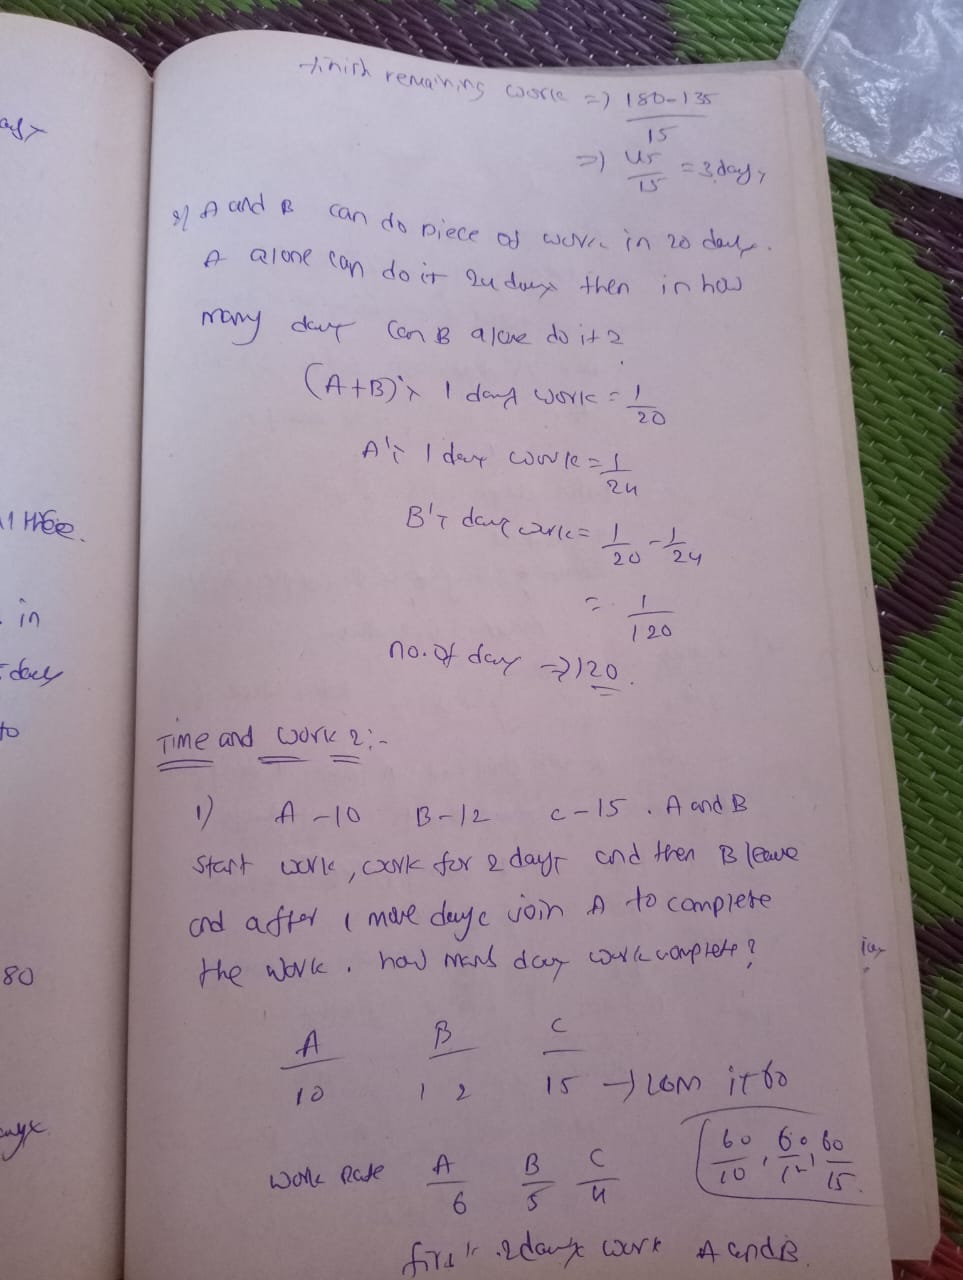 finish remaining work => 180-135
15
=> 45/15 = 3 days
8) A and B can do piece of work in 20 days.
A alone can do it 24 days then in how
many days can B alone do it?
(A+B)'s 1 day work = 1/20
A's 1 day work = 1/24
B's day work = 1/20 - 1/24
= 1/120
no. of day => 120.
Time and Work 2:-
1) A-10 B-12 C-15. A and B
start work, work for 2 days and then B leave
and after 1 more day c join A to complete
the work. how many day work complete?
A B C
10 12 15 → LCM it 60
60/10, 60/12, 60/15
Work Rate A/6 B/5 C/4
first 2 days work A and B.
all three.
in
days
to
80